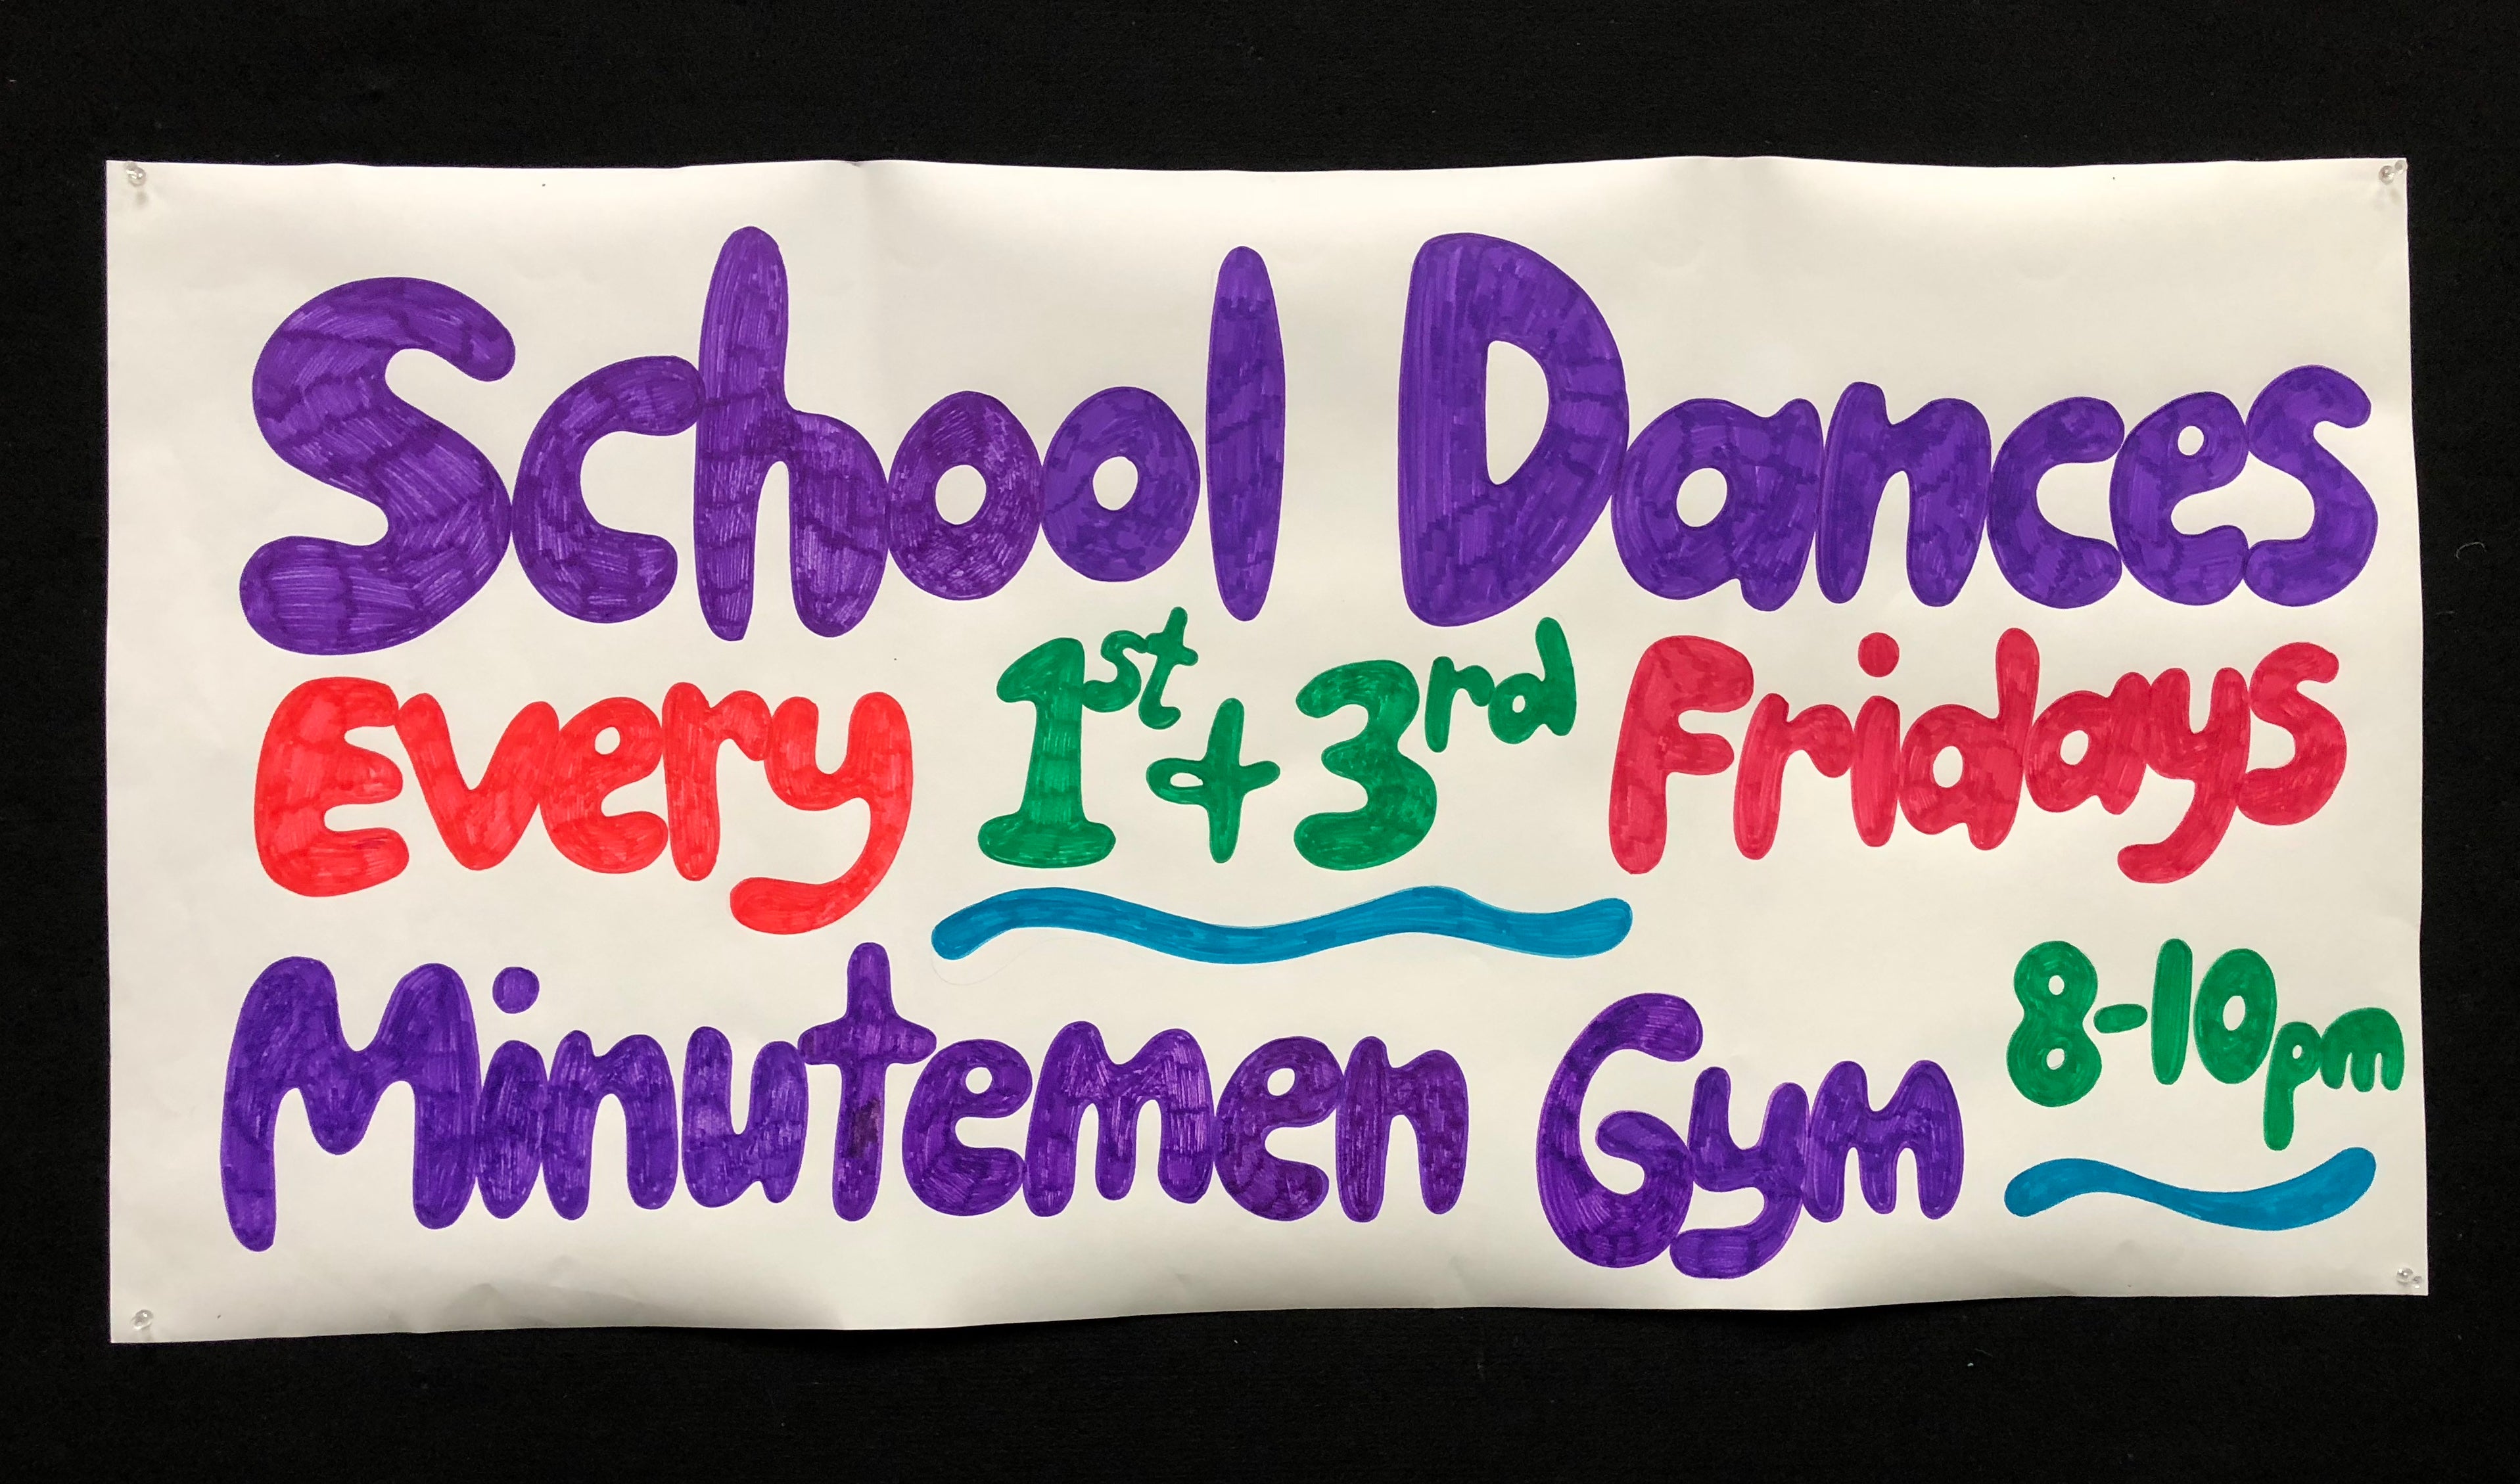 School Dances
Every 1st + 3rd Fridays
Minutemen Gym 8-10pm